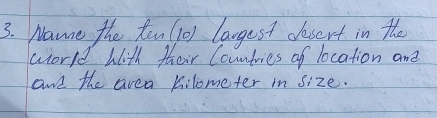 3. Name the ten (10) largest desert in the
world with their Countries of location and
and the area Kilometer in size.